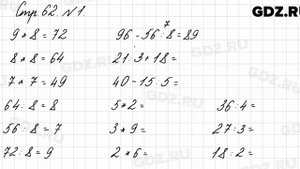 Стр. 62. №1.
9 * 8 = 72
8 * 8 = 64
7 * 7 = 49
64 : 8 = 8
56 : 8 = 7
72 : 8 = 9
7
96 - 56 : 8 = 89
21 : 3 + 18 =
40 - 15 : 5 =
5 * 2 =
3 * 9 =
2 * 6 =
36 : 4 =
27 : 3 =
18 : 2 =
GDZ.RU